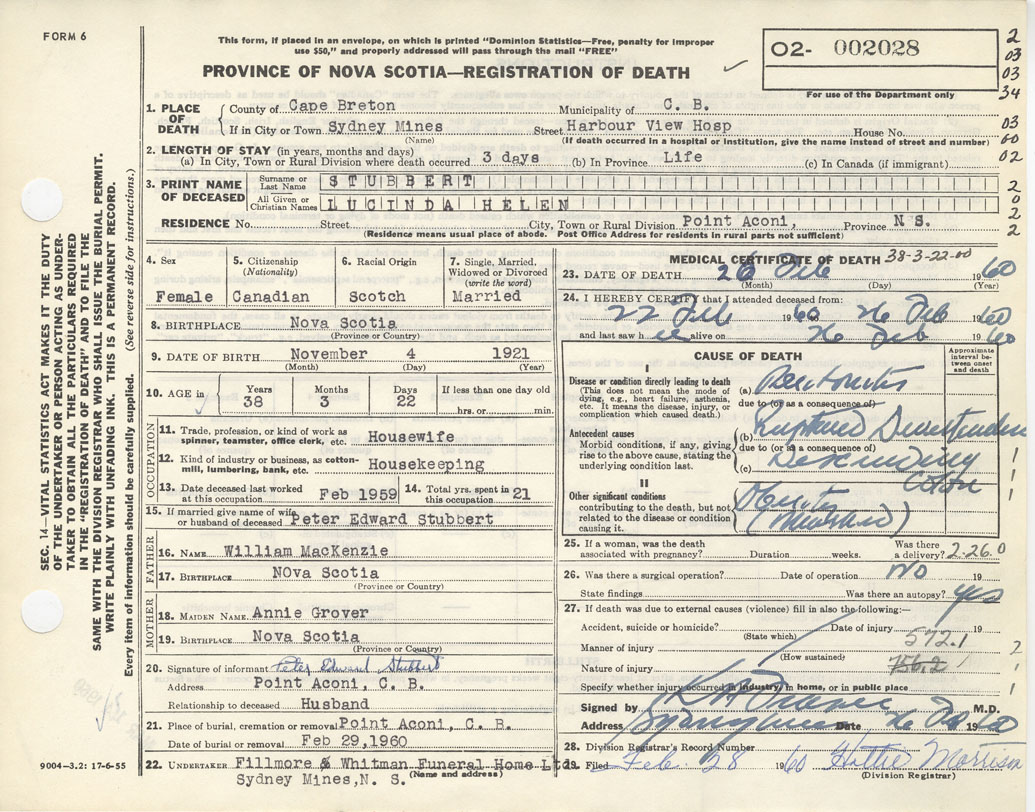 FORM 6
This form, if placed in an envelope, on which is printed "Dominion Statistics—Free, penalty for improper
use $50," and properly addressed will pass through the mail "FREE"
PROVINCE OF NOVA SCOTIA—REGISTRATION OF DEATH
02- 002028
For use of the Department only
2
03
03
34
03
60
02
2
0
2
2
SEC. 14—VITAL STATISTICS ACT MAKES IT THE DUTY
OF THE UNDERTAKER OR PERSON ACTING AS UNDER-
TAKER TO OBTAIN ALL THE PARTICULARS REQUIRED
IN THE "REGISTRATION OF DEATH" AND TO FILE THE
SAME WITH THE DIVISION REGISTRAR WHO SHALL ISSUE THE BURIAL PERMIT.
WRITE PLAINLY WITH UNFADING INK. THIS IS A PERMANENT RECORD.
Every item of information should be carefully supplied. (See reverse side for instructions.)
1. PLACE OF DEATH
County of Cape Breton Municipality of C. B.
If in City or Town Sydney Mines Street Harbour View Hosp House No.
(Name) (If death occurred in a hospital or institution, give the name instead of street and number)
2. LENGTH OF STAY (in years, months and days)
(a) In City, Town or Rural Division where death occurred 3 days (b) In Province Life (c) In Canada (if immigrant)
3. PRINT NAME OF DECEASED
Surname or Last Name STUBBERT
All Given or Christian Names LUCINDA HELEN
RESIDENCE No. Street City, Town or Rural Division Point Aconi, Province N S.
(Residence means usual place of abode. Post Office Address for residents in rural parts not sufficient)
4. Sex
Female
5. Citizenship
(Nationality)
Canadian
6. Racial Origin
Scotch
7. Single, Married,
Widowed or Divorced
(write the word)
Married
8. BIRTHPLACE Nova Scotia
(Province or Country)
9. DATE OF BIRTH November 4 1921
(Month) (Day) (Year)
10. AGE in
Years 38
Months 3
Days 22
If less than one day old
hrs. or min.
OCCUPATION
11. Trade, profession or kind of work as
spinner, teamster, office clerk, etc. Housewife
12. Kind of industry or business, as cotton-
mill, lumbering, bank, etc. Housekeeping
13. Date deceased last worked
at this occupation Feb 1959
14. Total yrs. spent in
this occupation 21
15. If married give name of wife
or husband of deceased Peter Edward Stubbert
FATHER
16. NAME William MacKenzie
17. BIRTHPLACE NOva Scotia
(Province or Country)
MOTHER
18. MAIDEN NAME Annie Grover
19. BIRTHPLACE Nova Scotia
(Province or Country)
20. Signature of informant Peter Edward Stubbert
Address Point Aconi, C. B.
Relationship to deceased Husband
21. Place of burial, cremation or removal Point Aconi, C. B.
Date of burial or removal Feb 29,1960
22. UNDERTAKER Fillmore & Whitman Funeral Home Ltd.
Sydney Mines,N. S. (Name and address)
9004—3.2: 17-6-55
MEDICAL CERTIFICATE OF DEATH 38-3-22-00
23. DATE OF DEATH 26 Feb 1960
(Month) (Day) (Year)
24. I HEREBY CERTIFY that I attended deceased from:
22 Feb 1960 26 Feb 1960
and last saw h er alive on 26 Feb 1960
CAUSE OF DEATH
Approximate
interval be-
tween onset
and death
I
Disease or condition directly leading to death
(This does not mean the mode of
dying, e.g., heart failure, asthenia,
etc. It means the disease, injury, or
complication which caused death.)
(a) Peritonitis
due to (or as a consequence of)
Antecedent causes
Morbid conditions, if any, giving
rise to the above cause, stating the
underlying condition last.
(b) Ruptured
due to (or as a consequence of)
(c) Descending
Colon
II
Other significant conditions
contributing to the death, but not
related to the disease or condition
causing it.
25. If a woman, was the death
associated with pregnancy? Duration weeks. Was there
a delivery? 2.26.0
26. Was there a surgical operation? Date of operation NO 19
State findings Was there an autopsy? yes
27. If death was due to external causes (violence) fill in also the following:—
Accident, suicide or homicide? Date of injury 19
(State which) 572.1
Manner of injury
(How sustained) 756.2
Nature of injury
Specify whether injury occurred in industry, in home, or in public place
Signed by M.D.
Address Sydney Mines Date 26 Feb 1960
28. Division Registrar's Record Number
29. Filed Feb. 28 1960 Hattie Morrison
(Division Registrar)